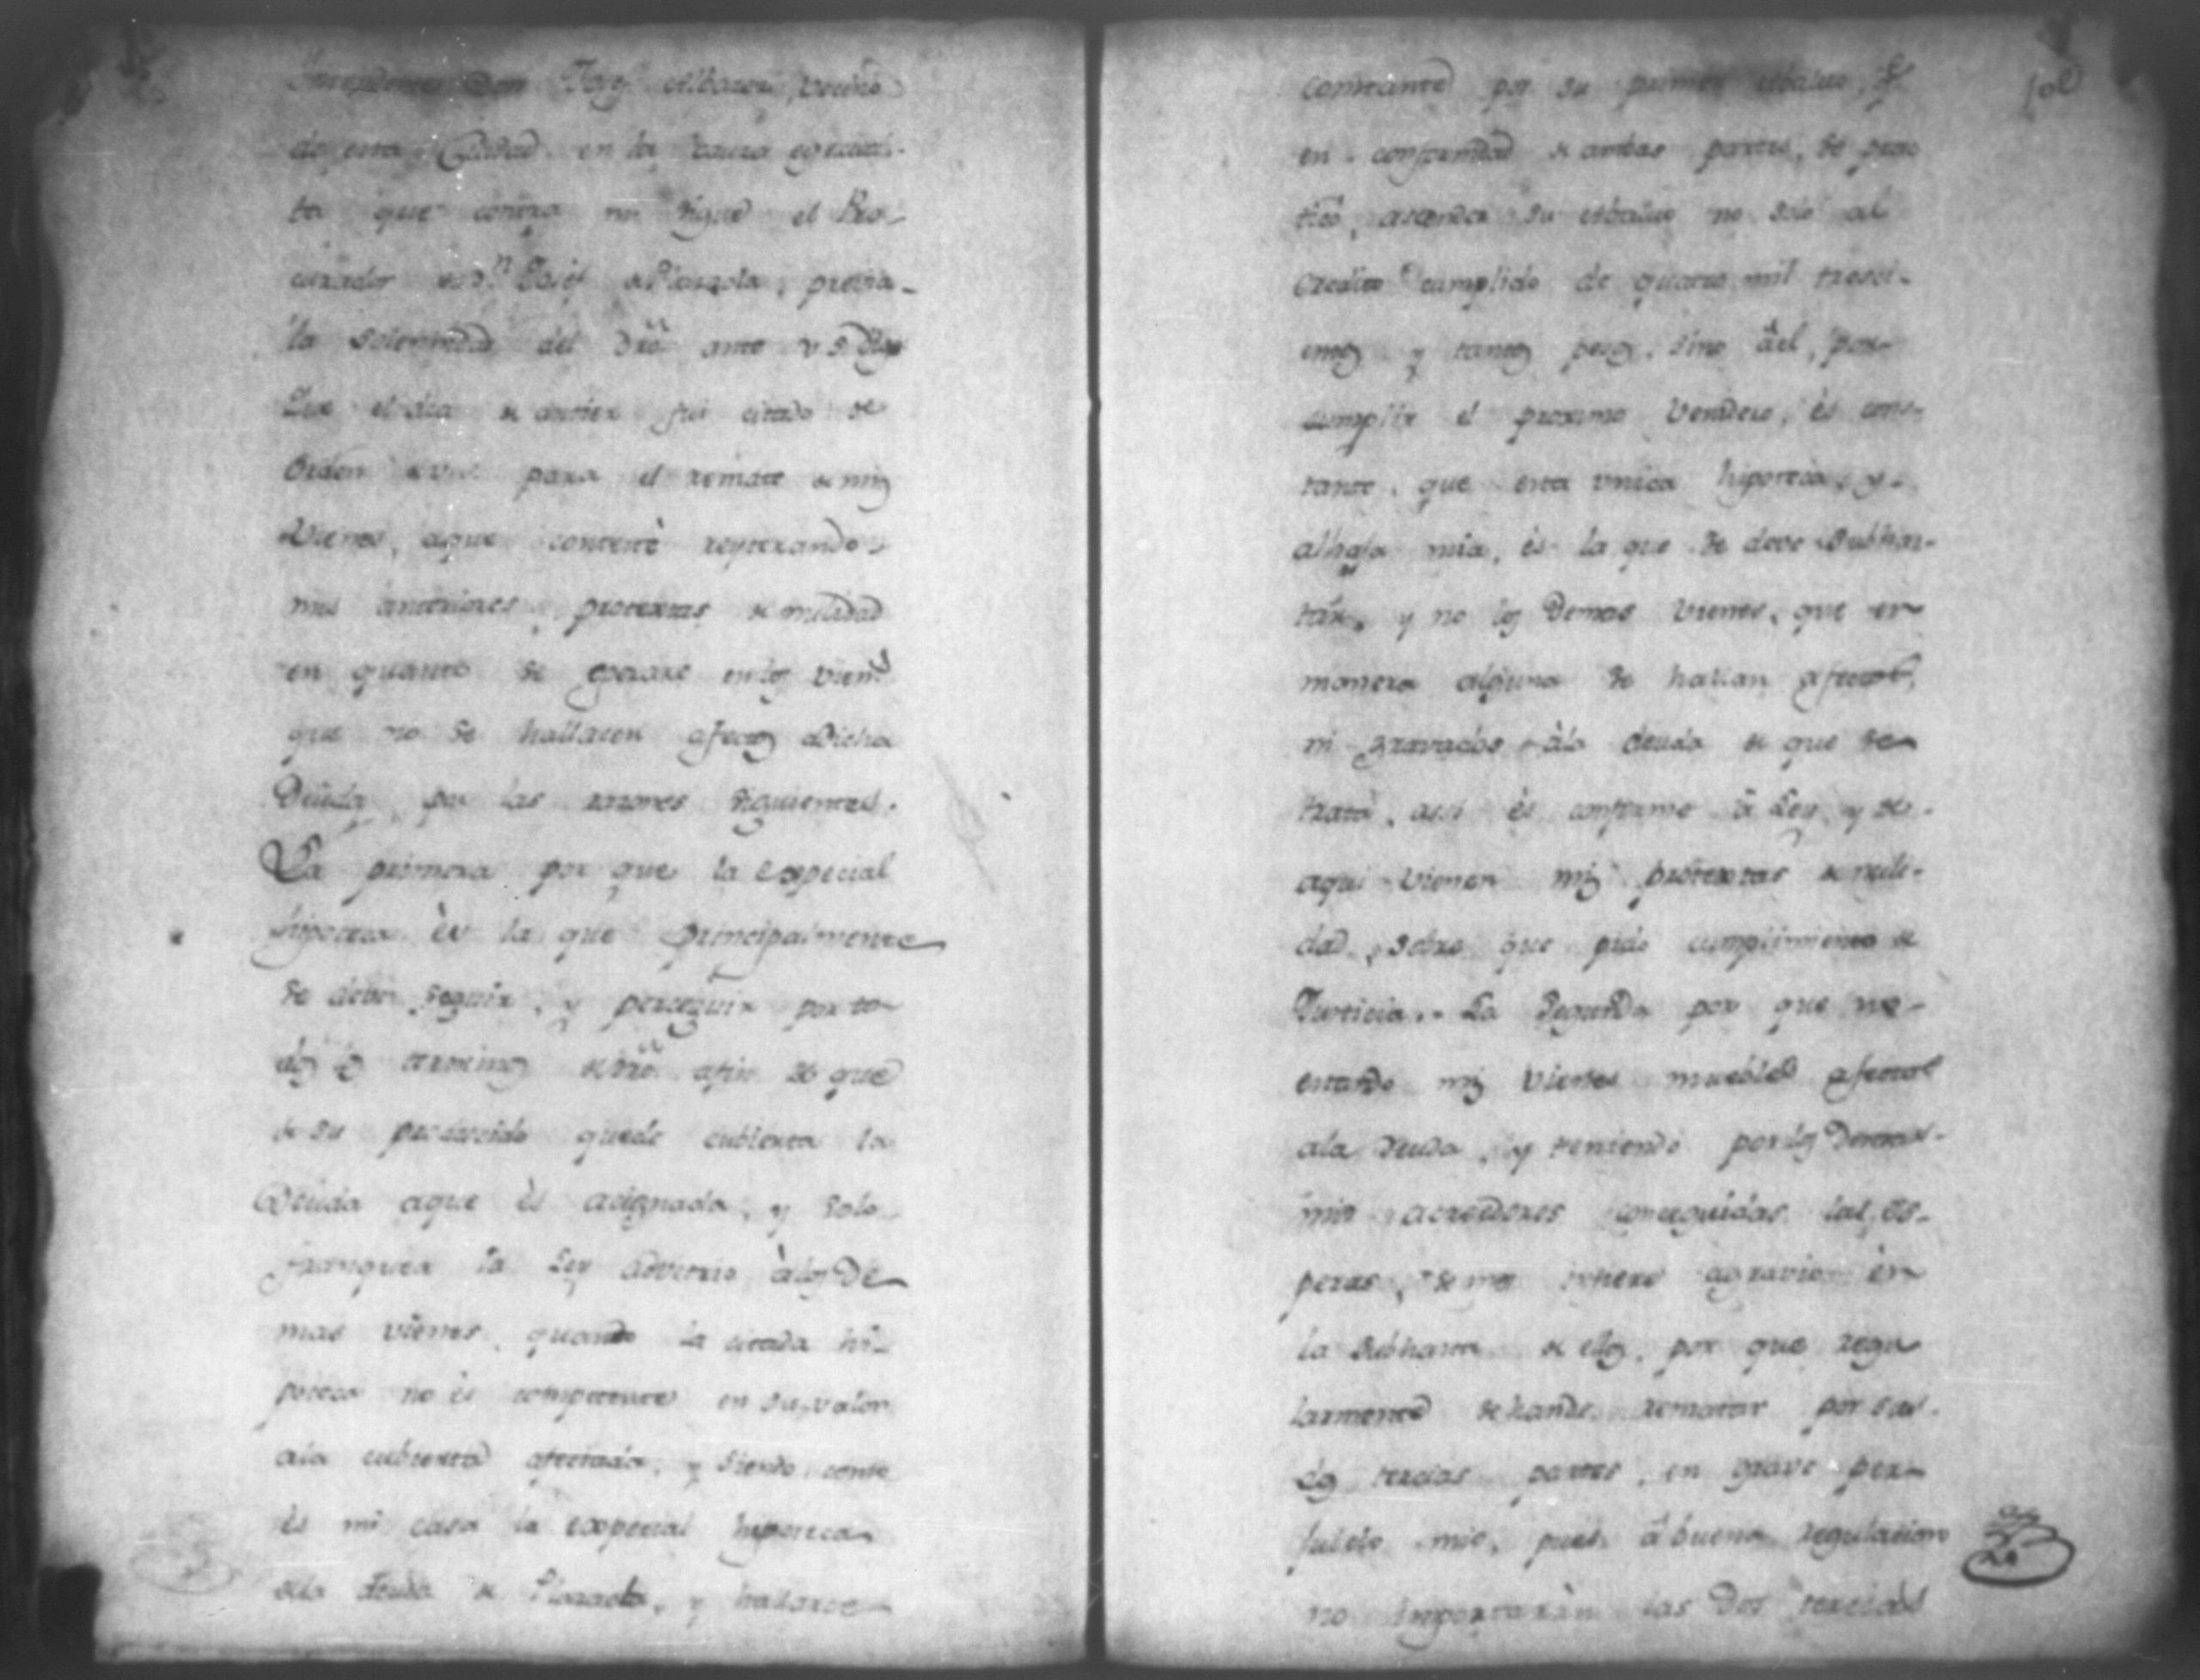 Don Jorge vecino
de esta Ciudad en la causa egecuti-
ba que contra mi sigue el Pro-
curador de Dn. Plazaola, previa
la solemnidad del dro ante
Que el dia de antier fui citado de
orden de para el remate de mis
Vienes, aque contexté reyterando
mis anteriores protextas de nulidad
en quanto se operare en los vienes
que no se hallacen afectos adicha
Deuda, por las razones siguientes.
La primera por que la especial
hipoteca ès la que principalmente
se deve seguir, y perceguir por to-
dos los terminos de dro afin de que
de su producido quede cubierta la
Deuda aque ès acignada, y solo
franquea la Ley adverso àlos De-
mas vienes, quando la citada hi-
poteca no es competente en su valor
ala cubierta afectada, y siendo como
ès mi casa la especial hipoteca
dela deuda de Plazaola, y hallarce
constante por su primer abaluo, q.e
en conformidad de ambas partes, se prac
ticó, acender su abaluo no solo al
credito cumplido de quatro mil tresci-
entos y tantos pesos, sino àel, por
cumplir el proximo venidero, ès cons-
tante, que esta unica hipoteca, y
alhaja mia, ès la que se deve subhas-
tar, y no los Demas vienes, que en
manera alguna se hallan afectos,
ni gravados àla deuda de que se
trata, assi ès conforme à Ley, y de
aqui vienen mis protextas de nuli-
dad, sobre que pido cumplimiento de
Justicia. La segunda por que no
estando mis vienes muebles afectos
ala deuda, y teniendo por los Demas
mis acreedores conseguidas las es-
peras, se me infiere agravio èn
la subhasta de ellos, por que regu
larmente se hande rematar por sus
dos tercias partes, en grave per-
juicio mio, pues à buena regulacion
no importaràn las Dos tercias